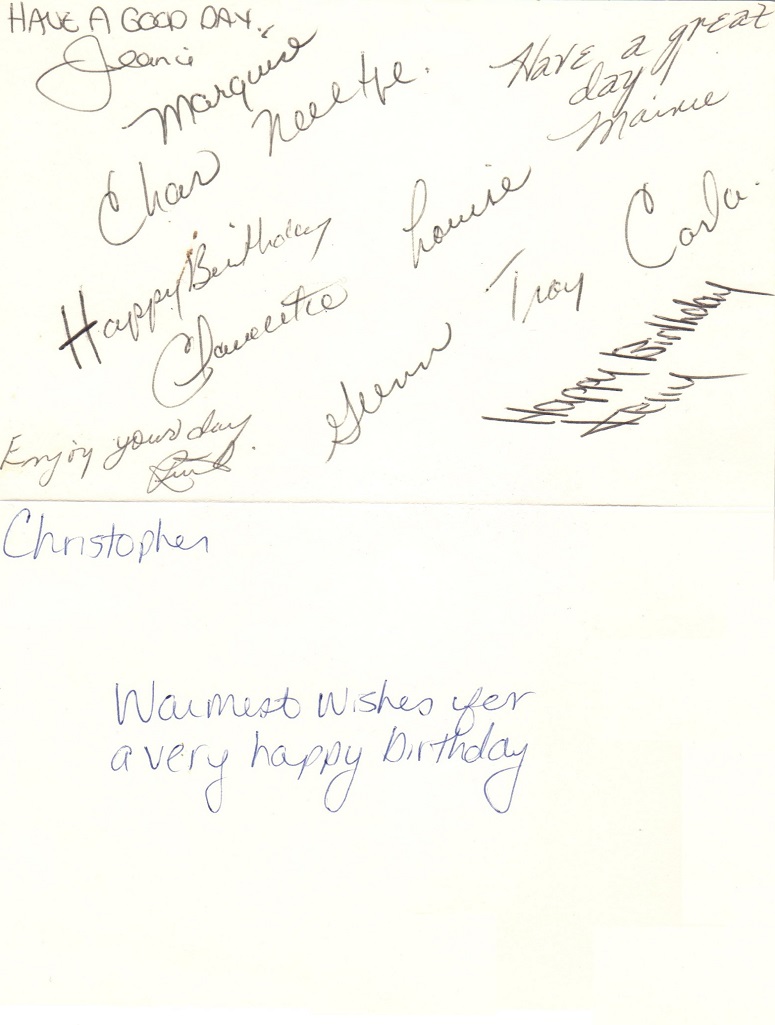 HAVE A GOOD DAY..
Jeanie
Marquise
Neeltje.
Have a great
day
Mainie
Char
Louise
Carla.
Happy Birthday
Troy
Glenn
Happy Birthday
Enjoy your day
Christopher
Warmest Wishes for
a very happy birthday